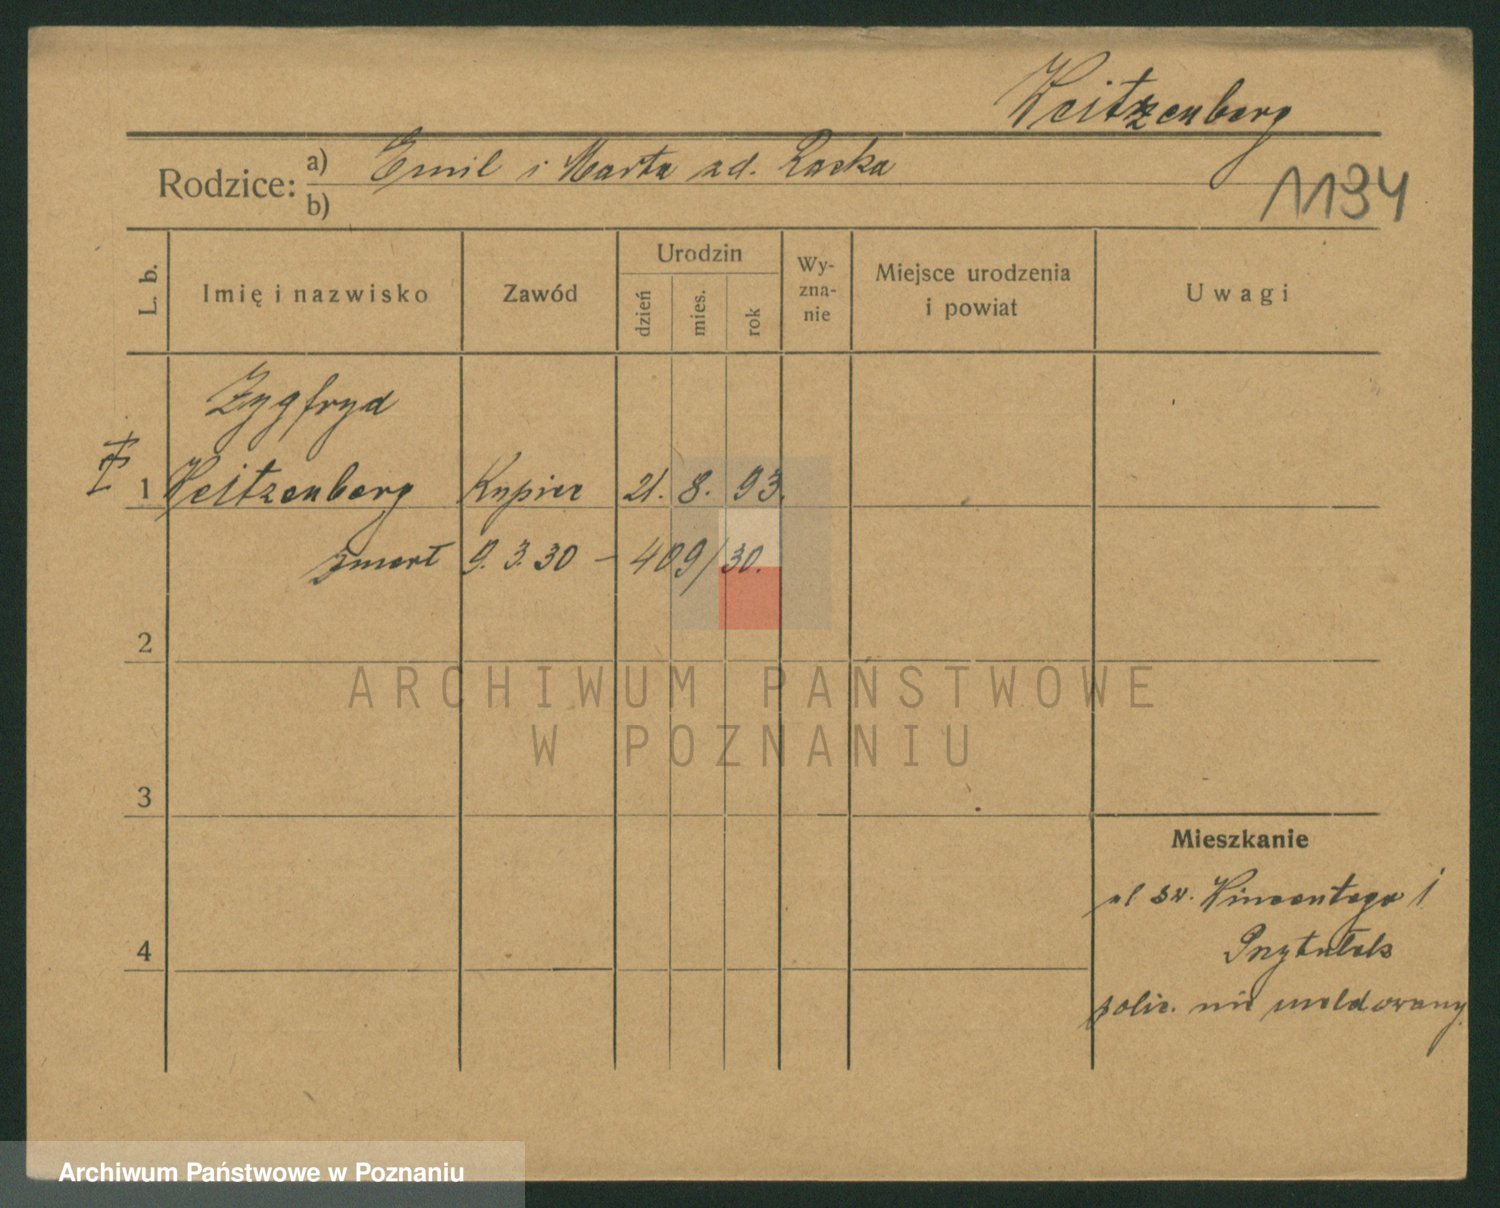 Weitzenberg
Rodzice: a) Emil i Marta zd. Racka
b)
1194
L. b. Imię i nazwisko Zawód Urodzin dzień mies. rok Wyznanie Miejsce urodzenia i powiat Uwagi
Zygfryd
1 Weitzenberg Kupiec 21. 8. 93.
zmarł 9. 3. 30 – 409/30.
2
3
4
Mieszkanie
pl św. Wincentego 1
Przytułek
polic. nie meldowany.
ARCHIWUM PAŃSTWOWE
W POZNANIU
Archiwum Państwowe w Poznaniu